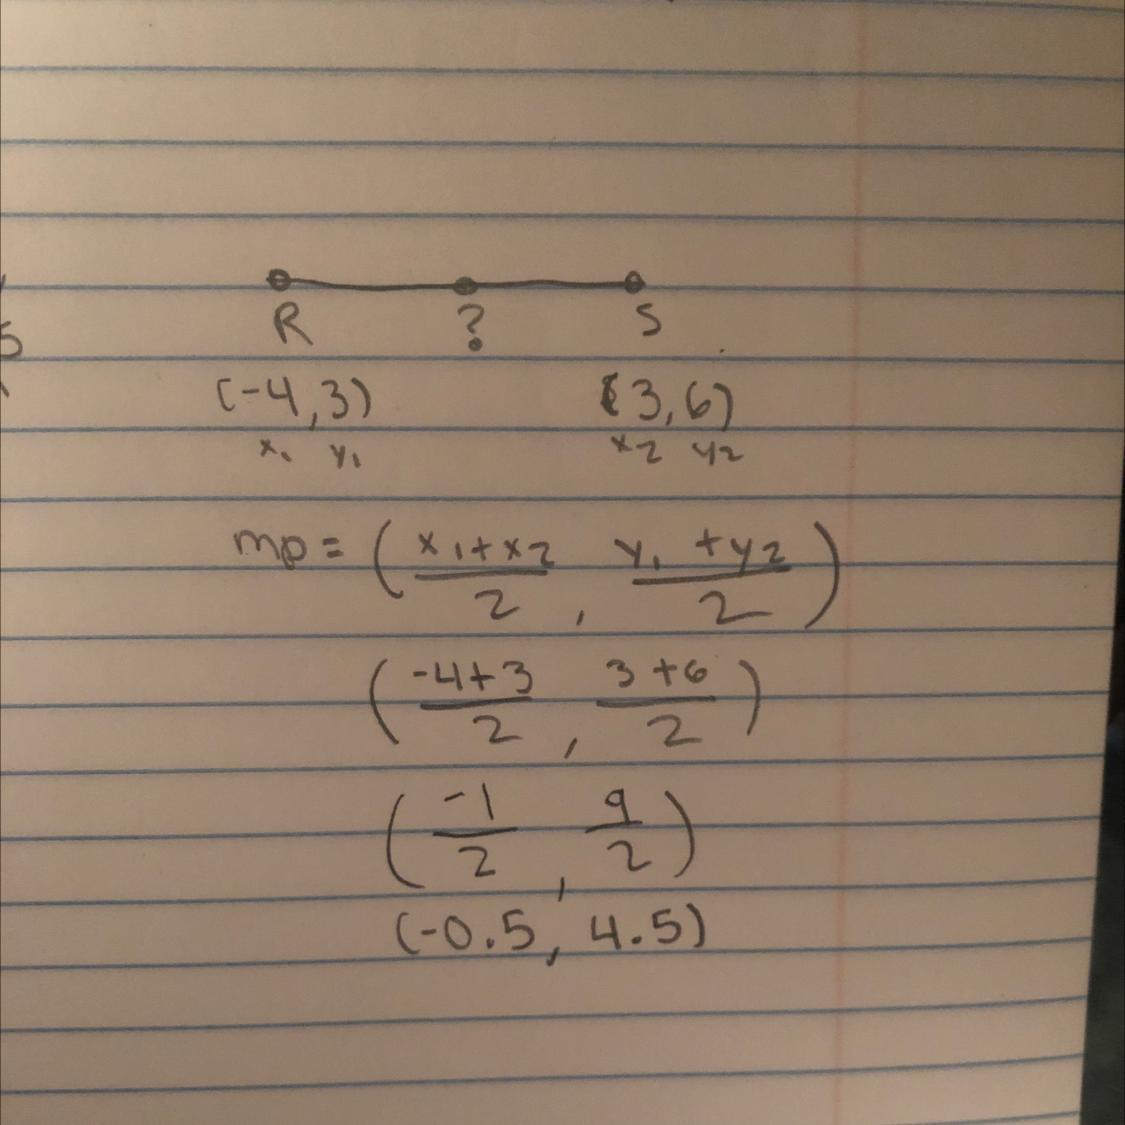 R ? S
(-4,3) (3,6)
x₁ y₁ x2 y2
5
mp = (x₁+x2/2, y₁+y2/2)
(-4+3/2, 3+6/2)
(-1/2, 9/2)
(-0.5, 4.5)